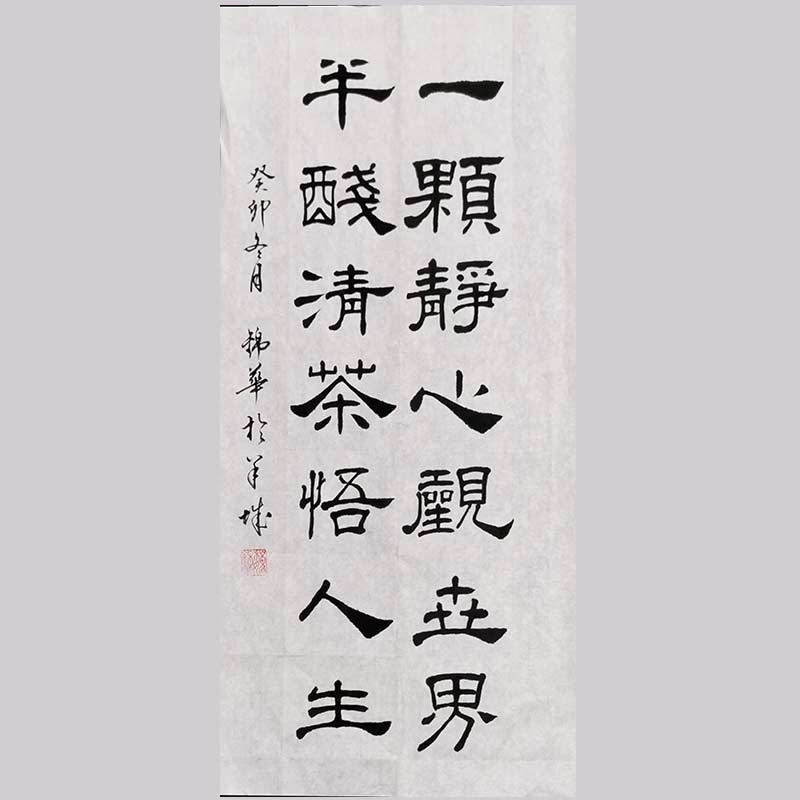 一顆靜心觀世界
半醆清茶悟人生
癸卯冬月 錦華於羊城